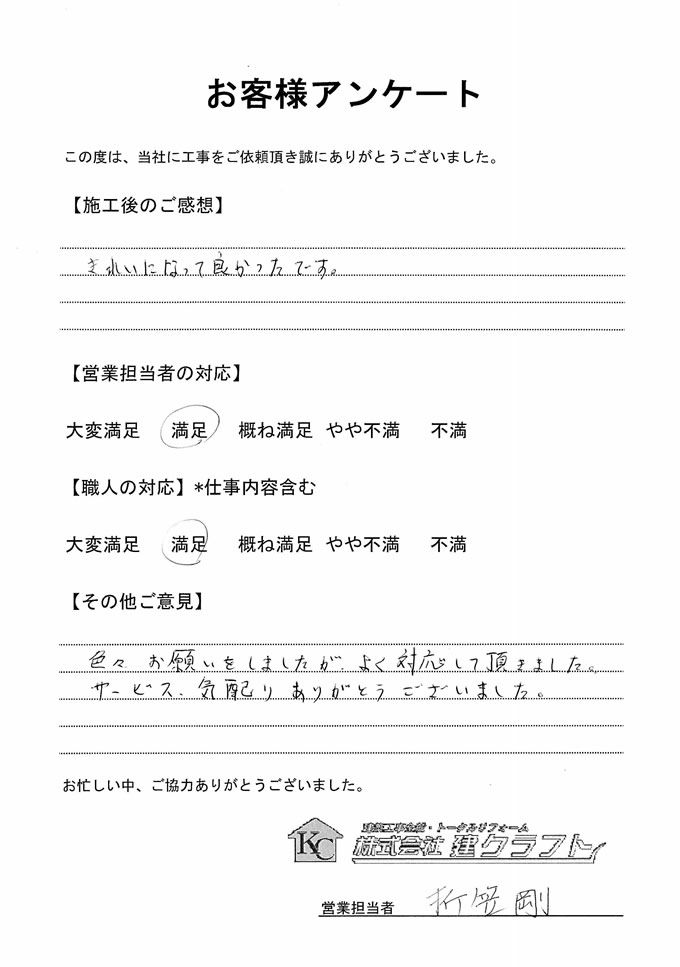 お客様アンケート
この度は、当社に工事をご依頼頂き誠にありがとうございました。
【施工後のご感想】
きれいになって良かったです。
【営業担当者の対応】
大変満足 満足 概ね満足 やや不満 不満
【職人の対応】*仕事内容含む
大変満足 満足 概ね満足 やや不満 不満
【その他ご意見】
色々お願いをしましたが、よく対応して頂きました。
サービス、気配りありがとうございました。
お忙しい中、ご協力ありがとうございました。
建築工事全般・トータルリフォーム
KC 株式会社 建クラフト
営業担当者 折笠 剛